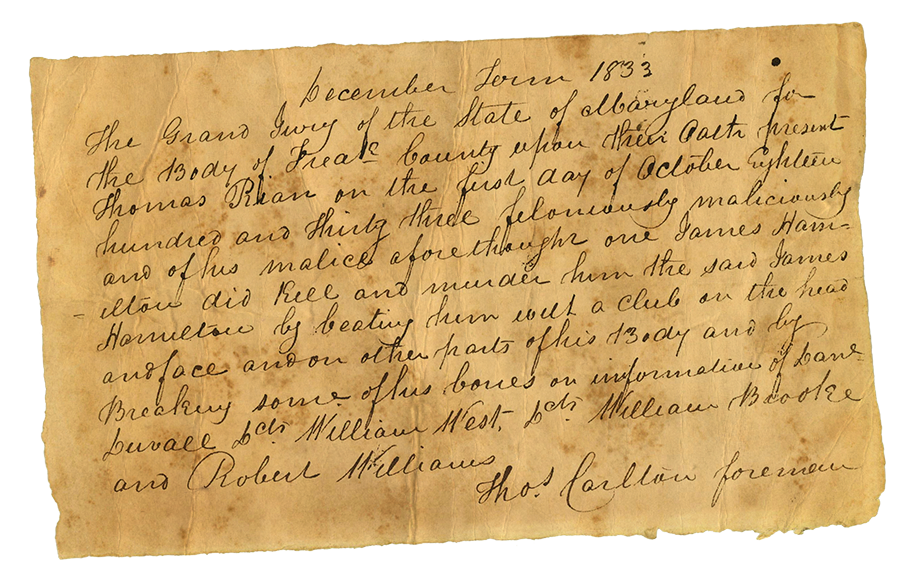 December Term 1833
The Grand Jury of the State of Maryland for
the Body of Fredk County upon their Oath present
Thomas Rian on the first day of October Eighteen
hundred and Thirty three feloniously maliciously
and of his malice aforethought one James Ham-
-ilton did Kill and murder him the said James
Hamilton by beating him with a club on the head
and face and on other parts of his Body and by
Breaking some of his bones on information of
Luvall Dcts William West, Dcts William Brooke
and Robert Williams
Thos Carlton foreman